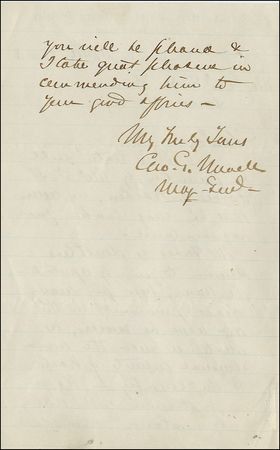 you will be pleased &
I take great pleasure in
commending him to
your good offices –
Very Truly Yours
Geo.
Maj. Genl –